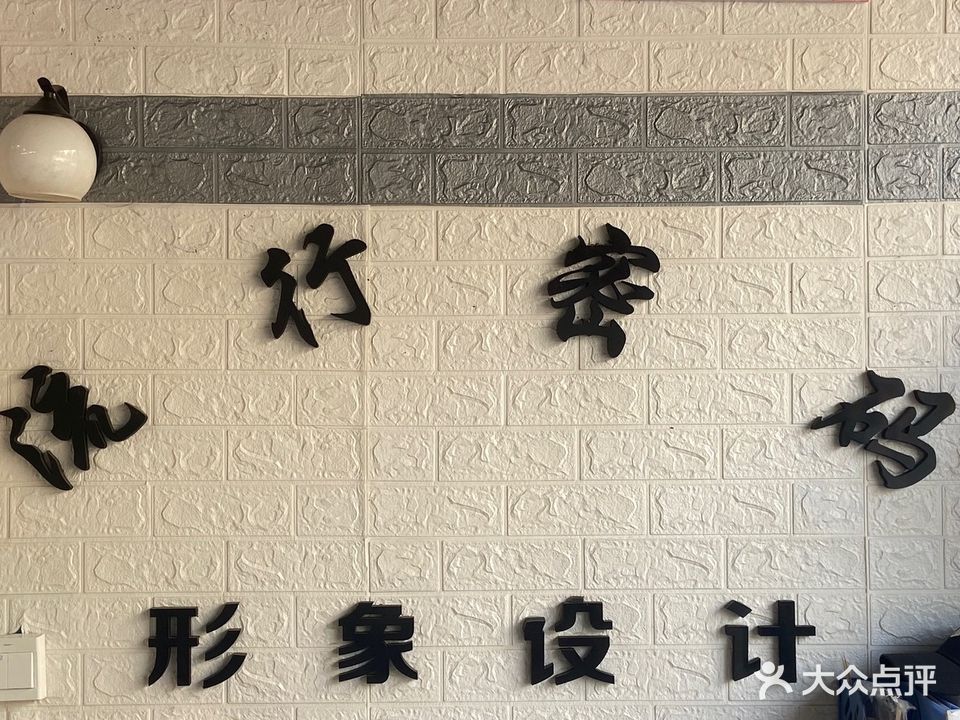 流行密码
形象设计
大众点评